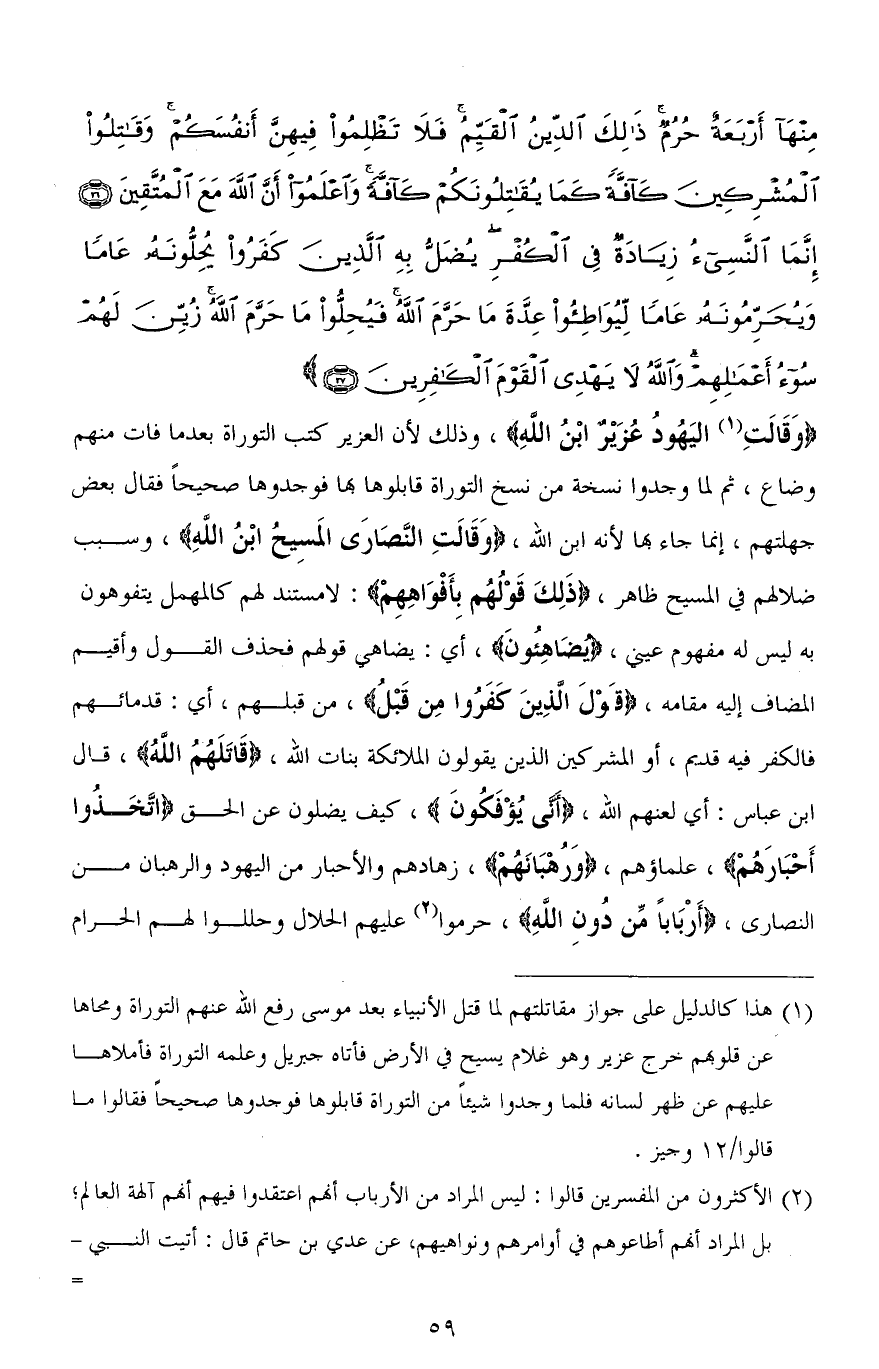 مِنْهَآ أَرْبَعَةٌ حُرُمٌ ۚ ذَٰلِكَ ٱلدِّينُ ٱلْقَيِّمُ ۚ فَلَا تَظْلِمُوا۟ فِيهِنَّ أَنفُسَكُمْ ۚ وَقَٰتِلُوا۟
ٱلْمُشْرِكِينَ كَآفَّةً كَمَا يُقَٰتِلُونَكُمْ كَآفَّةً ۚ وَٱعْلَمُوٓا۟ أَنَّ ٱللَّهَ مَعَ ٱلْمُتَّقِينَ ٣٦
إِنَّمَا ٱلنَّسِىٓءُ زِيَادَةٌ فِى ٱلْكُفْرِ ۖ يُضَلُّ بِهِ ٱلَّذِينَ كَفَرُوا۟ يُحِلُّونَهُۥ عَامًا
وَيُحَرِّمُونَهُۥ عَامًا لِّيُوَاطِـُٔوا۟ عِدَّةَ مَا حَرَّمَ ٱللَّهُ ۚ فَيُحِلُّوا۟ مَا حَرَّمَ ٱللَّهُ ۚ زُيِّنَ لَهُمْ
سُوٓءُ أَعْمَٰلِهِمْ ۗ وَٱللَّهُ لَا يَهْدِى ٱلْقَوْمَ ٱلْكَٰفِرِينَ ٣٧ ﴾
﴿وَقَالَتِ(١) اليَهُودُ عُزَيْرٌ ابْنُ اللَّهِ﴾ ، وذلك لأن العزير كتب التوراة بعدما فات منهم
وضاع ، ثم لما وجدوا نسخة من نسخ التوراة قابلوها بها فوجدوها صحيحاً فقال بعض
جهلتهم ، إنما جاء بها لأنه ابن الله ، ﴿وَقَالَتِ النَّصَارَى المَسِيحُ ابْنُ اللَّهِ﴾ ، وسبب
ضلالهم في المسيح ظاهر ، ﴿ذَلِكَ قَوْلُهُم بِأَفْوَاهِهِمْ﴾ : لامستند لهم كالمهمل يتفوهون
به ليس له مفهوم عيني ، ﴿يُضَاهِئُونَ﴾ ، أي : يضاهي قولهم فحذف القول وأقيم
المضاف إليه مقامه ، ﴿قَوْلَ الَّذِينَ كَفَرُوا مِن قَبْلُ﴾ ، من قبلهم ، أي : قدمائهم
فالكفر فيه قديم ، أو المشركين الذين يقولون الملائكة بنات الله ، ﴿قَاتَلَهُمُ اللَّهُ﴾ ، قال
ابن عباس : أي لعنهم الله ، ﴿أَنَّى يُؤْفَكُونَ ﴾ ، كيف يضلون عن الحق ﴿اتَّخَذُوا
أَحْبَارَهُمْ﴾ ، علماؤهم ، ﴿وَرُهْبَانَهُمْ﴾ ، زهادهم والأحبار من اليهود والرهبان من
النصارى ، ﴿أَرْبَاباً مِّن دُونِ اللَّهِ﴾ ، حرموا(٢) عليهم الحلال وحللوا لهم الحرام
(١) هذا كالدليل على جواز مقاتلتهم لما قتل الأنبياء بعد موسى رفع الله عنهم التوراة ومحاها
عن قلوبهم خرج عزير وهو غلام يسيح في الأرض فأتاه جبريل وعلمه التوراة فأملاها
عليهم عن ظهر لسانه فلما وجدوا شيئاً من التوراة قابلوها فوجدوها صحيحاً فقالوا ما
قالوا/١٢ وجيز .
(٢) الأكثرون من المفسرين قالوا : ليس المراد من الأرباب أنهم اعتقدوا فيهم أنهم آلهة العالم؛
بل المراد أنهم أطاعوهم في أوامرهم ونواهيهم، عن عدي بن حاتم قال : أتيت النبي -
=
٥٩